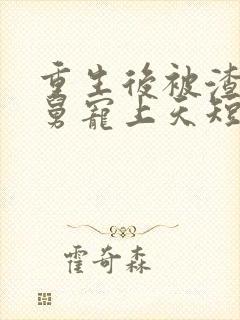 重生後被渣
舅寵上天短
霍奇森